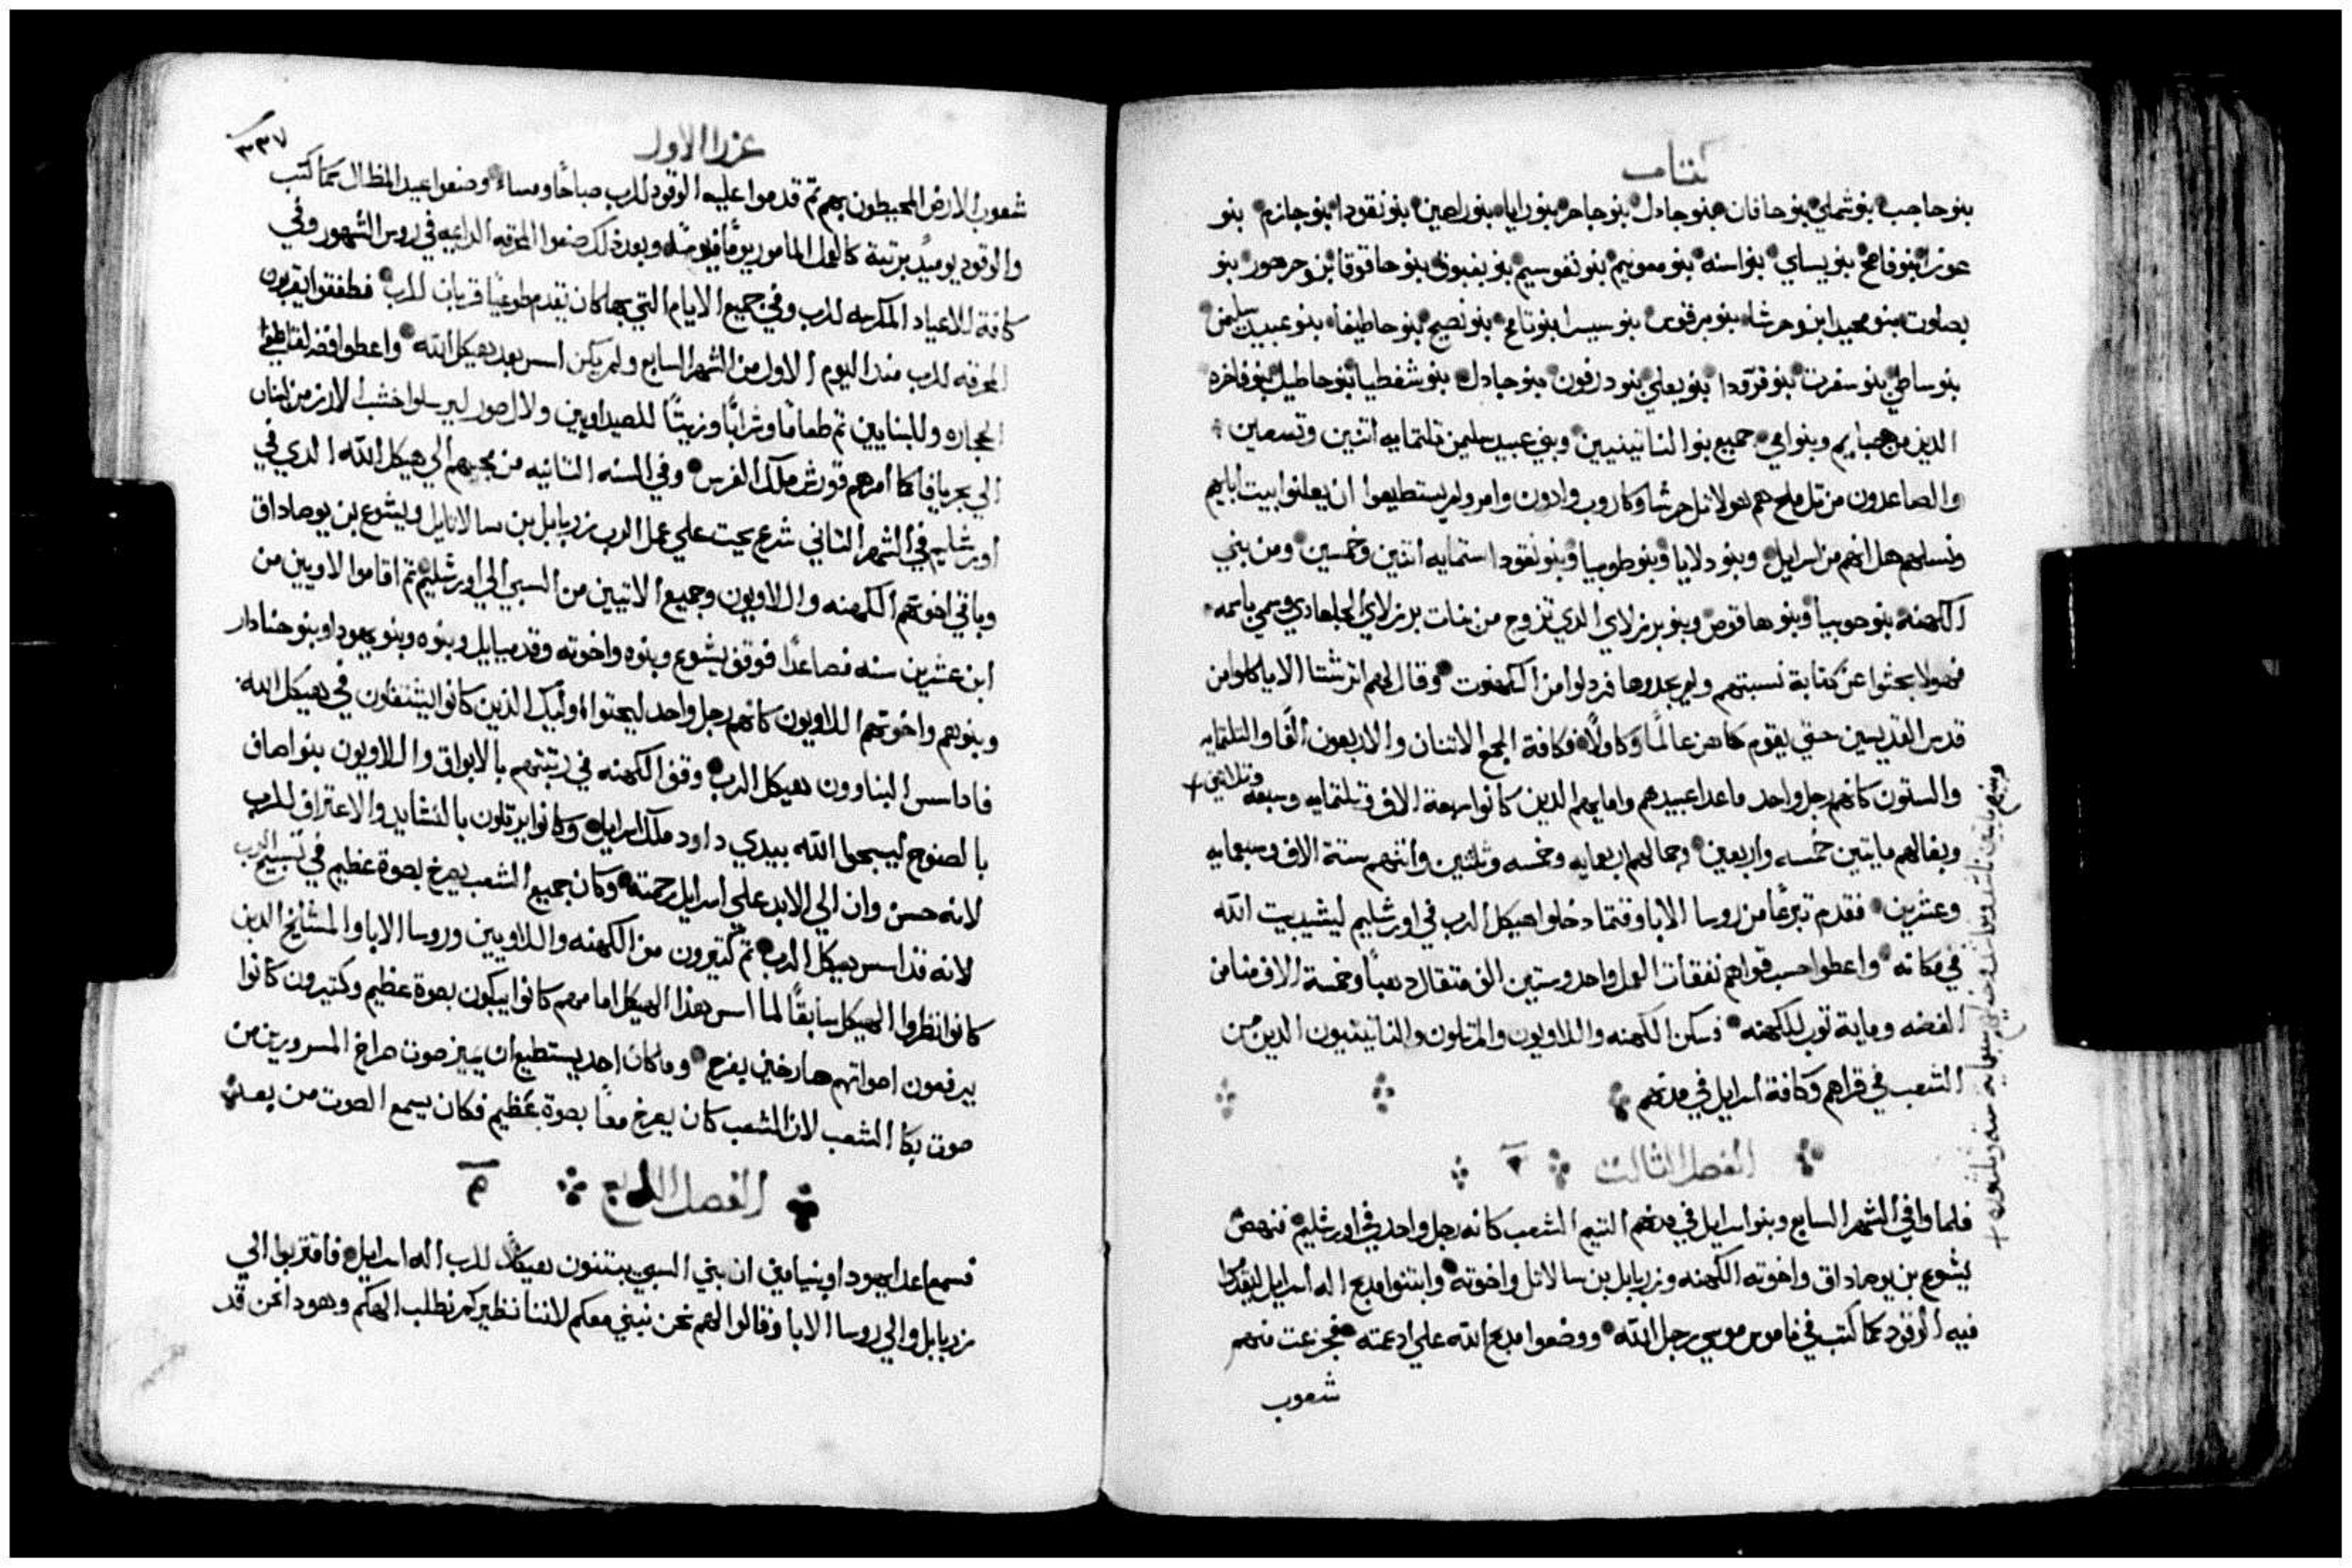 كتاب
بنو حاجب بنو شملي بنو حانان بنو جادل بنو جاحر بنو رايا بنو راصين بنو نقودا بنو جازم بنو
عوزا بنو فاصح بنو يساي بنو اسنه بنو معونيم بنو نفوسيم بنو بقبوق بنو حاقوقا بنو حرحور بنو
بصلوت بنو محيدا بنو حرشا بنو برقوس بنو سيسرا بنو تامح بنو نصيح بنو حاطيفا بنو عبيد سليمن
بنو ساطي بنو سفرت بنو فرودا بنو يعلي بنو درفون بنو جادل بنو شفطيا بنو حاطيل بنو فاخره
الدين من صبايم وبنو امي جميع بنوا الناتينيين وبني عبيد سليمن تلتمايه اتنين وتسعين
والصاعدون من تل ملح هم هولا تل حرشا وكاروب وادون وامر ولم يستطيعوا ان يعلنوا بيت ابايهم
ونسلهم هل انهم من اسرايل وبنو دلايا وبنو طوبيا وبنو نقودا ستمايه اتنين وخمسين ومن بني
الكهنة بنو حوبيا وبنو هاقوص وبنو برزلاي الدي تزوج من بنات برزلاي الجلعادي وسمي باسمه
فهولا بحثوا عن كتابة نسبتهم ولم يجدوها فردلوا من الكهنوت وقال لهم اترشتا الا ياكلوا من
قدس القديسين حتي يقوم كاهن عالمًا وكاملًا فكافة الجمع الاتنان والاربعون الفًا والتلتمايه
والستون كانهم رجل واحد ما عدا عبيدهم وامايهم الدين كانوا سبعة الاف وتلتمايه وسبعه وتلاتين
وبغالهم مايتين خمسه واربعين وجمالهم اربعمايه وخمسه وتلتين واتنهم ستة الاف وسبعمايه
وعشرين فقدم تبرعًا من روسا الابا وقتما دخلوا هيكل الرب في اورشليم ليشيد بيت الله
في مكانه واعطوا حسب قواهم نفقات العمل واحد وستين الف متقال دهبًا وخمسة الاف منا من
الفضه وماية توب للكهنه فسكن الكهنه واللاويون والمرتلون والناتينيون الدين من
الشعب في قراهم وكافة اسرايل في مدنهم
الفصل التالت ٣
فلما وافي الشهر السابع وبنو اسرايل في مدنهم التيم الشعب كانه رجل واحد في اورشليم فنهض
يشوع بن يوصاداق واخوته الكهنه وزربابل بن سالاتل واخوته وابتنوا مدبح اله اسرايل ليقدموا
فيه الوقود كما كتب في ناموس موسي رجل الله ووضعوا مدبح الله علي ادعمته فجزعت منهم
شعوب
عزرا الاول
٣٣٧
شعوب الارض المحيطون بهم تم قدموا عليه الوقود للرب صباحًا ومساء وصنعوا عيد المظال كما كتب
والوقود يوميد برتبة كالعمل المامور يومًا فيومًا وبعد دلك صنعوا المحرقه الدايمه في روس الشهور وفي
كافة الاعياد المكرمه للرب وفي جميع الايام التي بها كان تقدم طوعيًا قربان للرب فطفقوا يقربون
المحرقه للرب مند اليوم الاول من الشهر السابع ولم يكن اسس بعد هيكل الله واعطوا فضه لقاطعي
الحجاره وللبنايين تم طعامًا وشرابًا وزيتًا للصيداويين ولال صور ليرسلوا خشب الارز من لبنان
الي بحر يافا كما امرهم قورش ملك الفرس وفي السنه التانيه من مجيهم الي هيكل الله الدي في
اورشليم في الشهر التاني شرع يحت علي عمل الرب زربابل بن سالاتايل ويشوع بن يوصاداق
وباقي اخوتهم الكهنه واللاويون وجميع الاتيين من السبي الي اورشليم تم اقاموا اللاويين من
ابن عشرين سنه فصاعدًا فوقف يشوع وبنوه واخوته وقدميايل وبنوه وبنو يهودا وبنو حناداد
وبنوهم واخوتهم اللاويون كانهم رجل واحد ليحتوا اوليك الدين كانوا يشتغلون في هيكل الله
فاد اسس البناوون هيكل الرب وقف الكهنه في رتبتهم بالابواق واللاويون بنو اصاف
بالصنوج ليسبحوا الله بيدي داود ملك اسرايل وكانوا يرتلون بالنشايد والاعتراف للرب
لانه حسن وان الي الابد علي اسرايل رحمته وكان جميع الشعب يصرخ بصوة عظيم في تسبيح الرب
لانه قد اسس هيكل الرب تم كتيرون من الكهنه واللاويين وروسا الابا والمشايخ الدين
كانوا نظروا الهيكل سابقًا لما اسس هذا الهيكل امامهم كانوا يبكون بصوة عظيم وكتيرون كانوا
يرفعون اصواتهم صارخين بفرح وما كان احد يستطيع ان يميز صوت صراخ المسرورين من
صوت بكا الشعب لان الشعب كان يصرخ معًا بصوة عظيم فكان يسمع الصوت من بعد
الفصل الرابع ٤
فسمع اعدا يهودا وبنيامين ان بني السبي يبتنون هيكلًا للرب اله اسرايل فاقتربوا الي
زربابل والي روسا الابا وقالوا لهم نحن نبني معكم لاننا نظيركم نطلب الهكم وهودا نحن قد